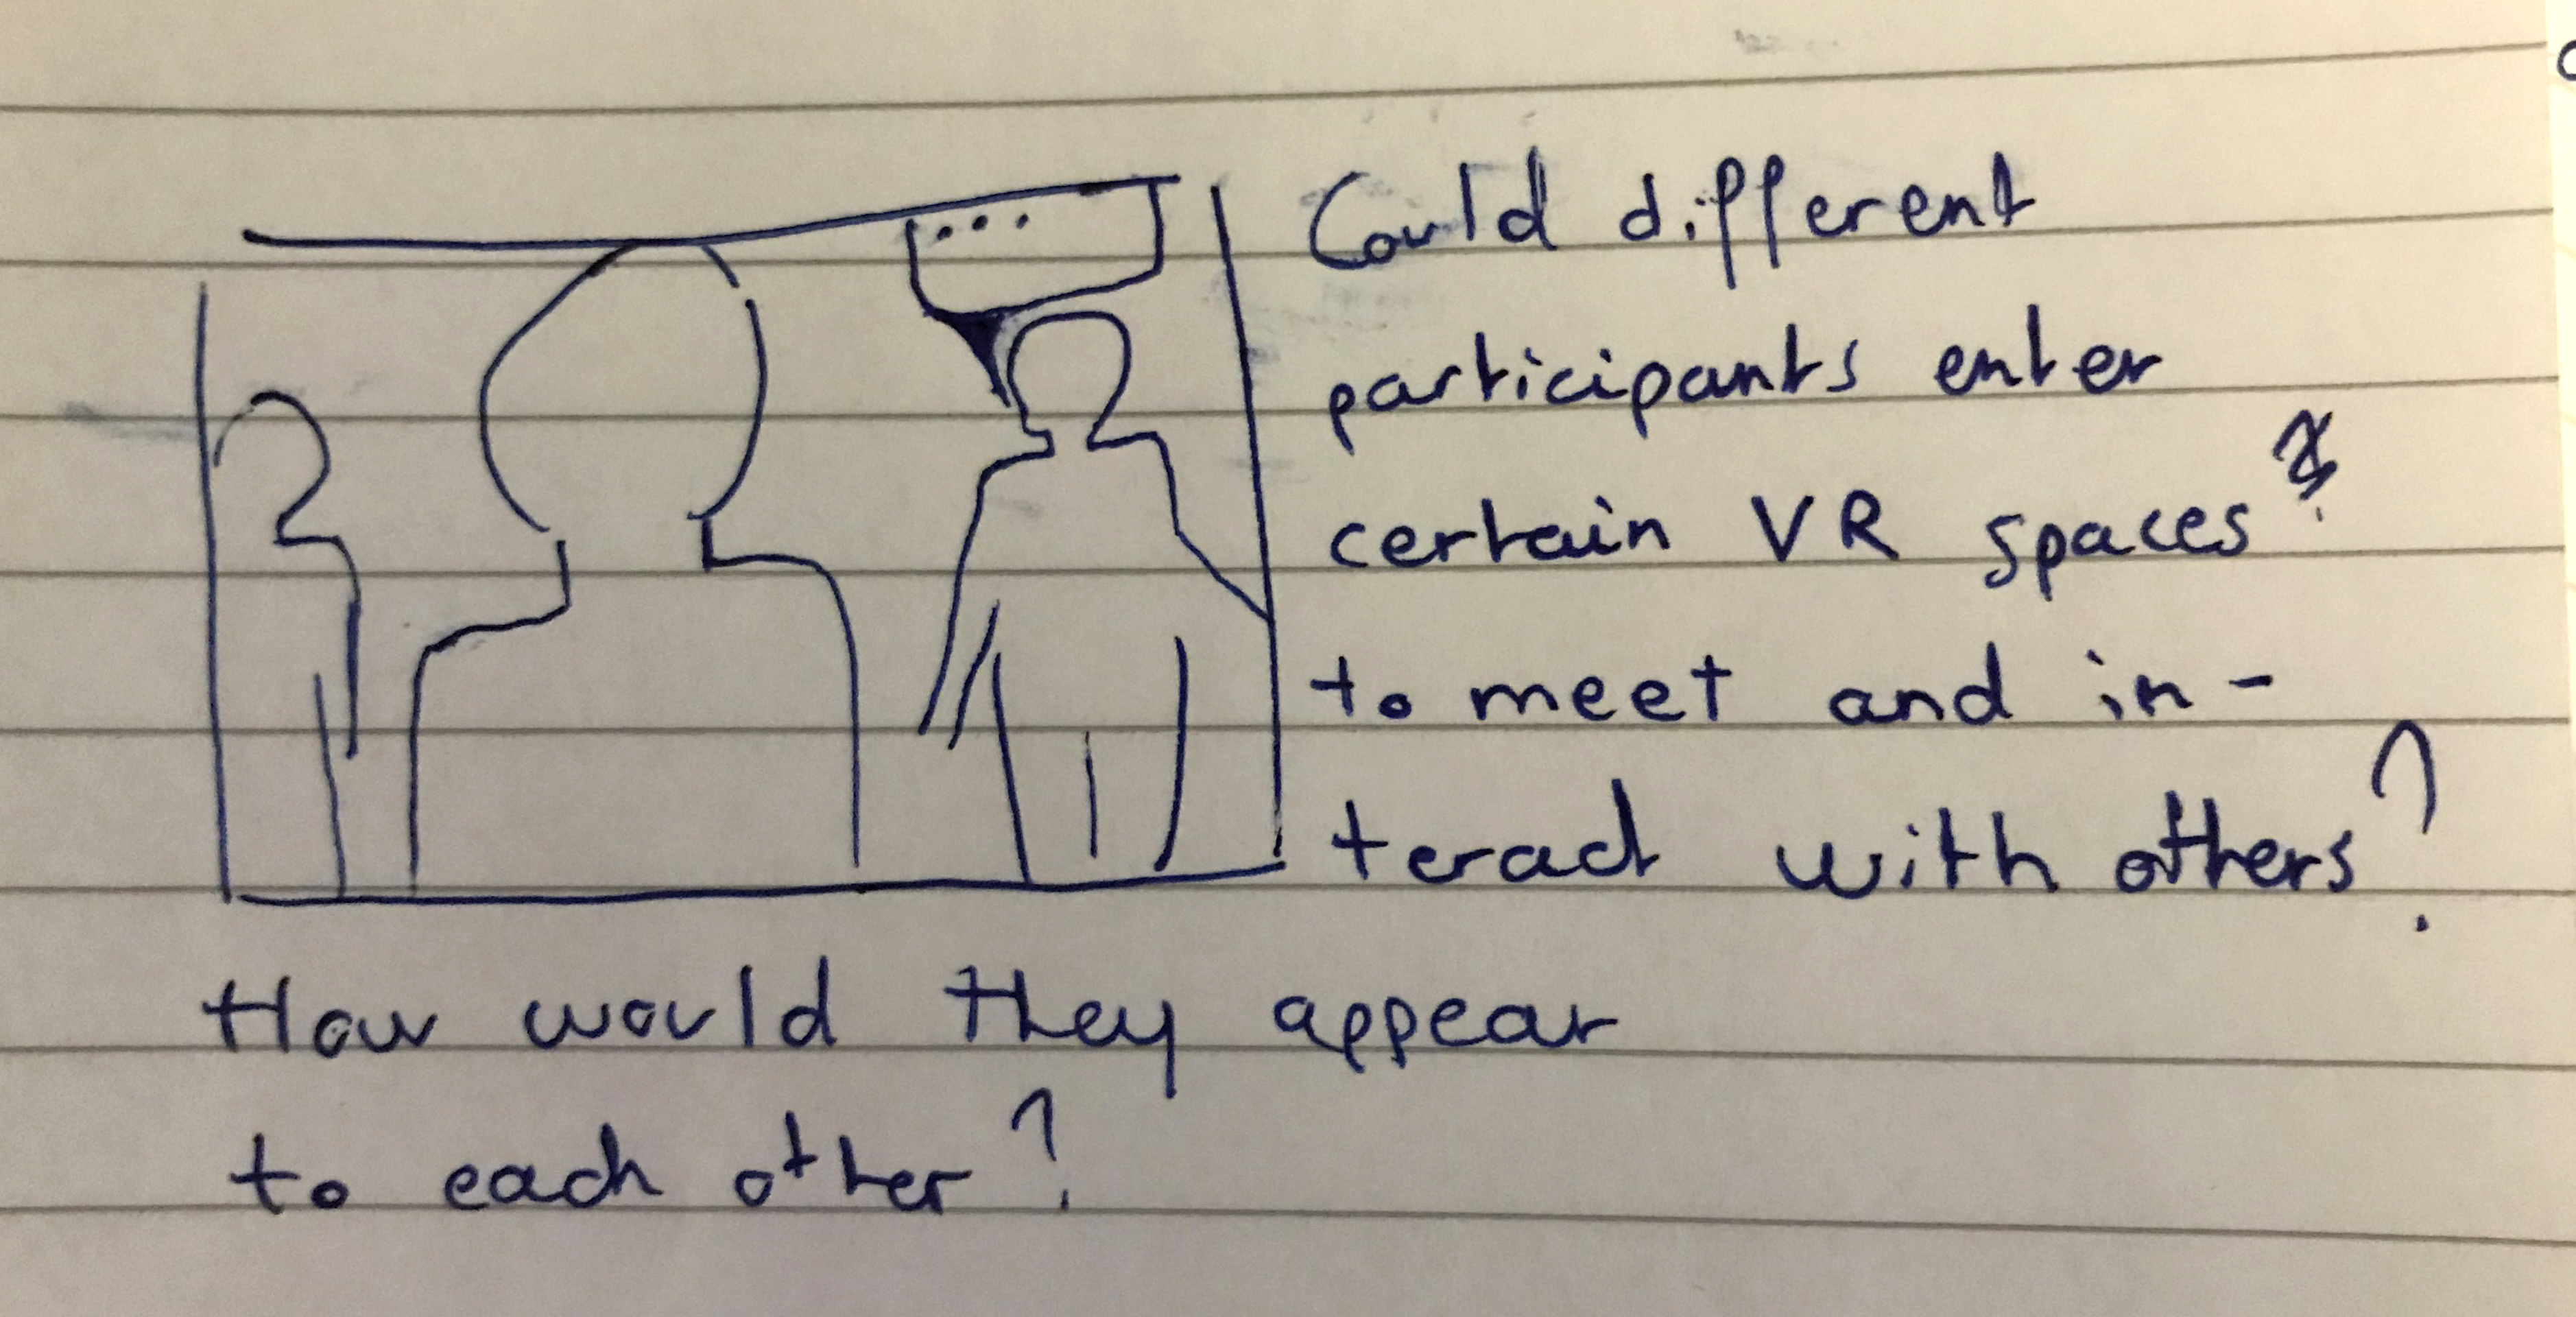 ...
Could different
participants enter
certain VR spaces
to meet and in-
teract with others?
How would they appear
to each other?